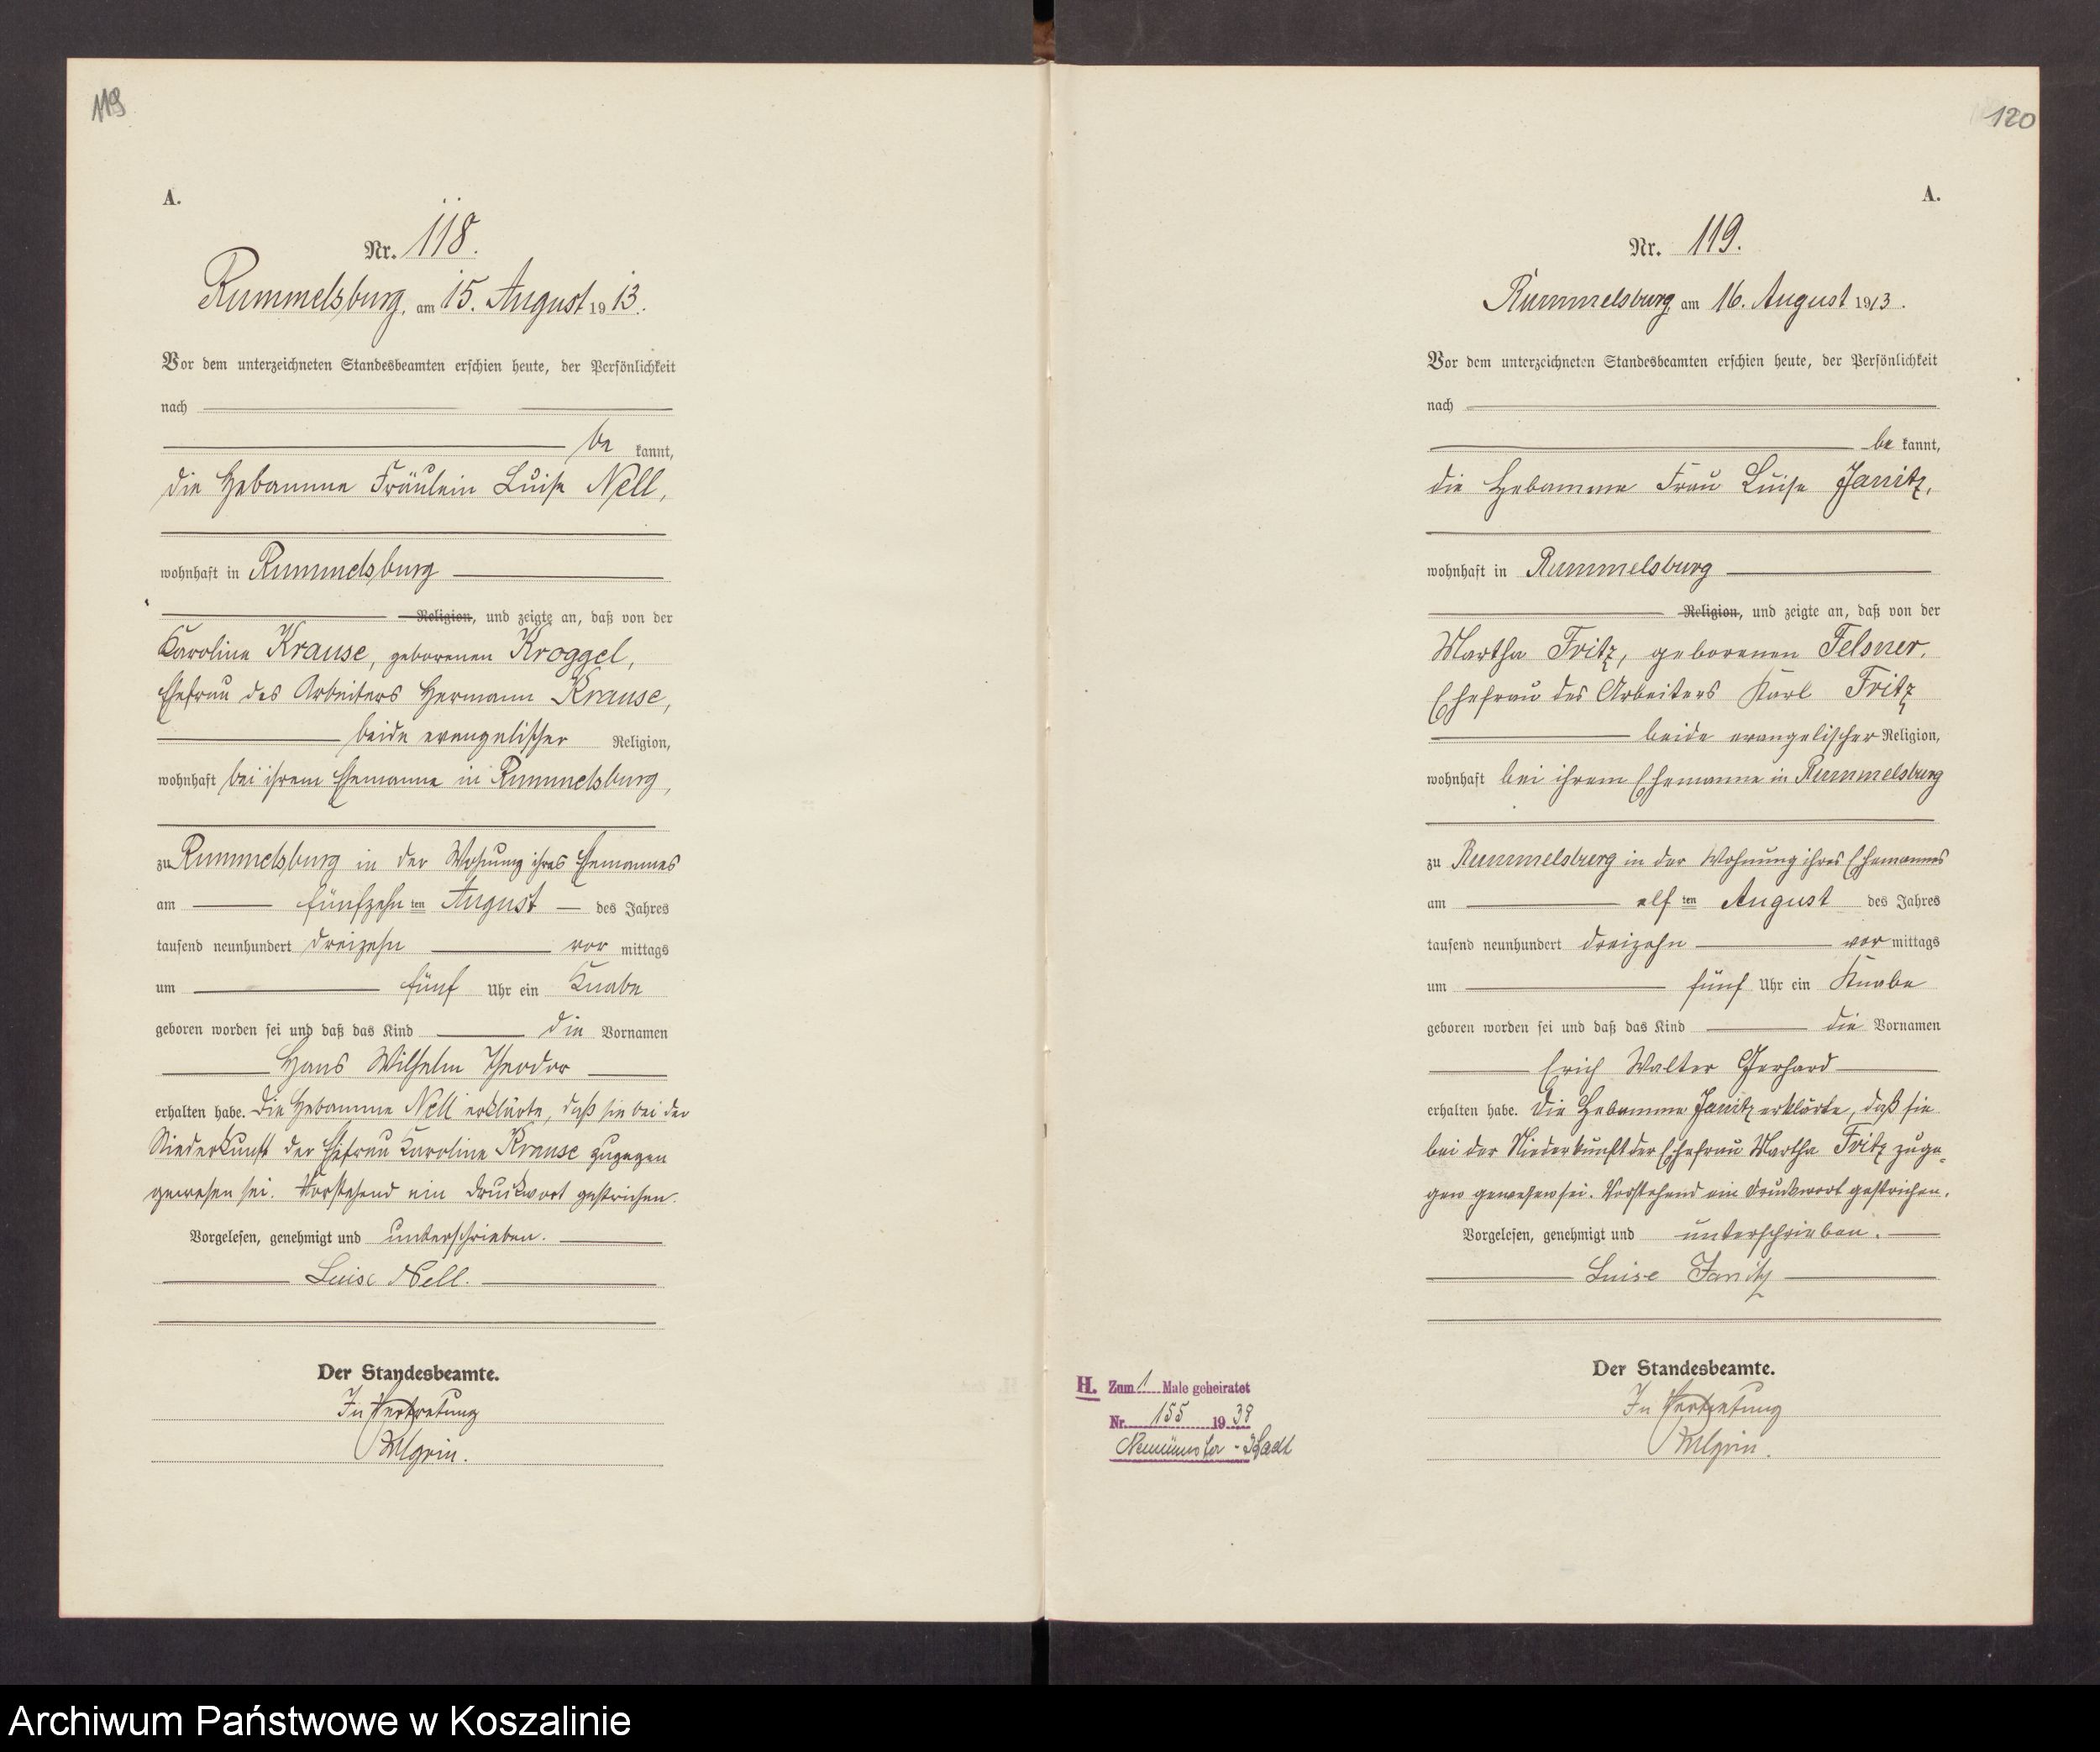 119
A.
Nr. 118.
Rummelsburg, am 15. August 1913.
Vor dem unterzeichneten Standesbeamten erschien heute, der Persönlichkeit
nach
be kannt,
die Hebamme Fräulein Luise Nell,
wohnhaft in Rummelsburg
Religion, und zeigte an, daß von der
Karoline Krause, geborenen Kroggel,
Ehefrau des Arbeiters Hermann Krause,
beide evangelischer Religion,
wohnhaft bei ihrem Ehemanne in Rummelsburg,
zu Rummelsburg in der Wohnung ihres Ehemannes
am fünfzehn ten August des Jahres
tausend neunhundert dreizehn vor mittags
um fünf Uhr ein Knabe
geboren worden sei und daß das Kind die Vornamen
Hans Wilhelm Theodor
erhalten habe. Die Hebamme Nell erklärte, daß sie bei der
Niederkunft der Ehefrau Karoline Krause zugegen
gewesen sei. Vorstehend ein Druckwort gestrichen.
Vorgelesen, genehmigt und unterschrieben.
Luise Nell.
Der Standesbeamte.
In Vertretung
120
A.
Nr. 119.
Rummelsburg, am 16. August 1913.
Vor dem unterzeichneten Standesbeamten erschien heute, der Persönlichkeit
nach
be kannt,
die Hebamme Frau Luise Janitz,
wohnhaft in Rummelsburg
Religion, und zeigte an, daß von der
Martha Fritz, geborenen Felsner,
Ehefrau des Arbeiters Karl Fritz
beide evangelischer Religion,
wohnhaft bei ihrem Ehemanne in Rummelsburg
zu Rummelsburg in der Wohnung ihres Ehemannes
am elf ten August des Jahres
tausend neunhundert dreizehn vor mittags
um fünf Uhr ein Knabe
geboren worden sei und daß das Kind die Vornamen
Erich Walter Gerhard
erhalten habe. Die Hebamme Janitz erklärte, daß sie
bei der Niederkunft der Ehefrau Martha Fritz zuge-
gen gewesen sei. Vorstehend ein Druckwort gestrichen.
Vorgelesen, genehmigt und unterschrieben.
Luise Janitz
Der Standesbeamte.
In Vertretung
H. Zum 1 Male geheiratet
Nr. 155 1938
Neumünster-Stadt
Archiwum Państwowe w Koszalinie